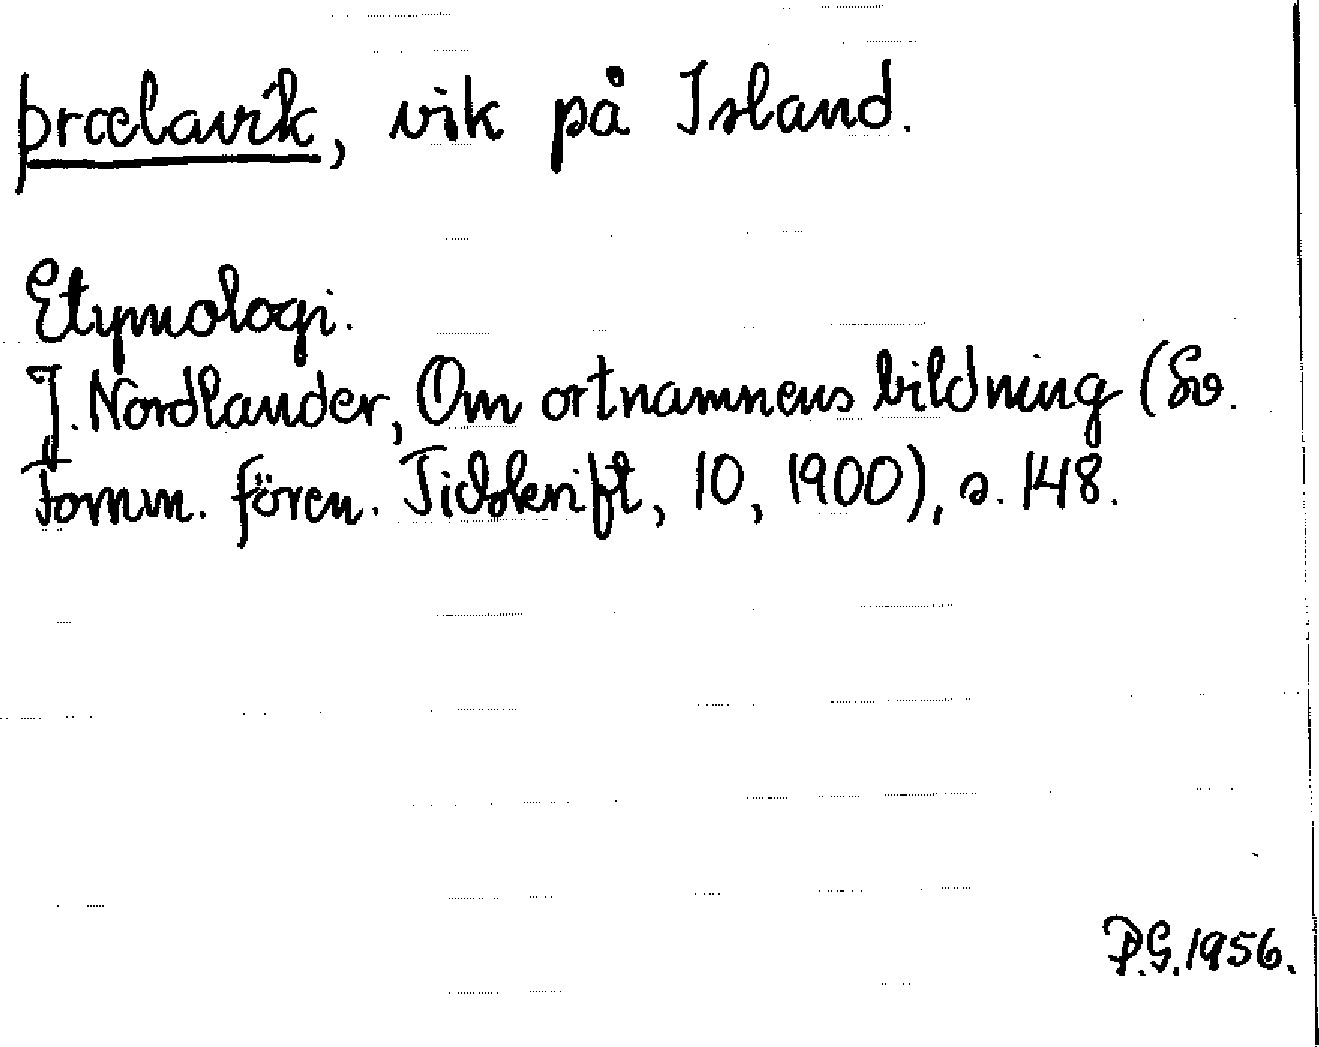 þrælavík, vik på Island.
Etymologi.
J. Nordlander, Om ortnamnens bildning (Sv.
Fornm. fören. Tidskrift, 10, 1900), s. 148.
P.G. 1956.